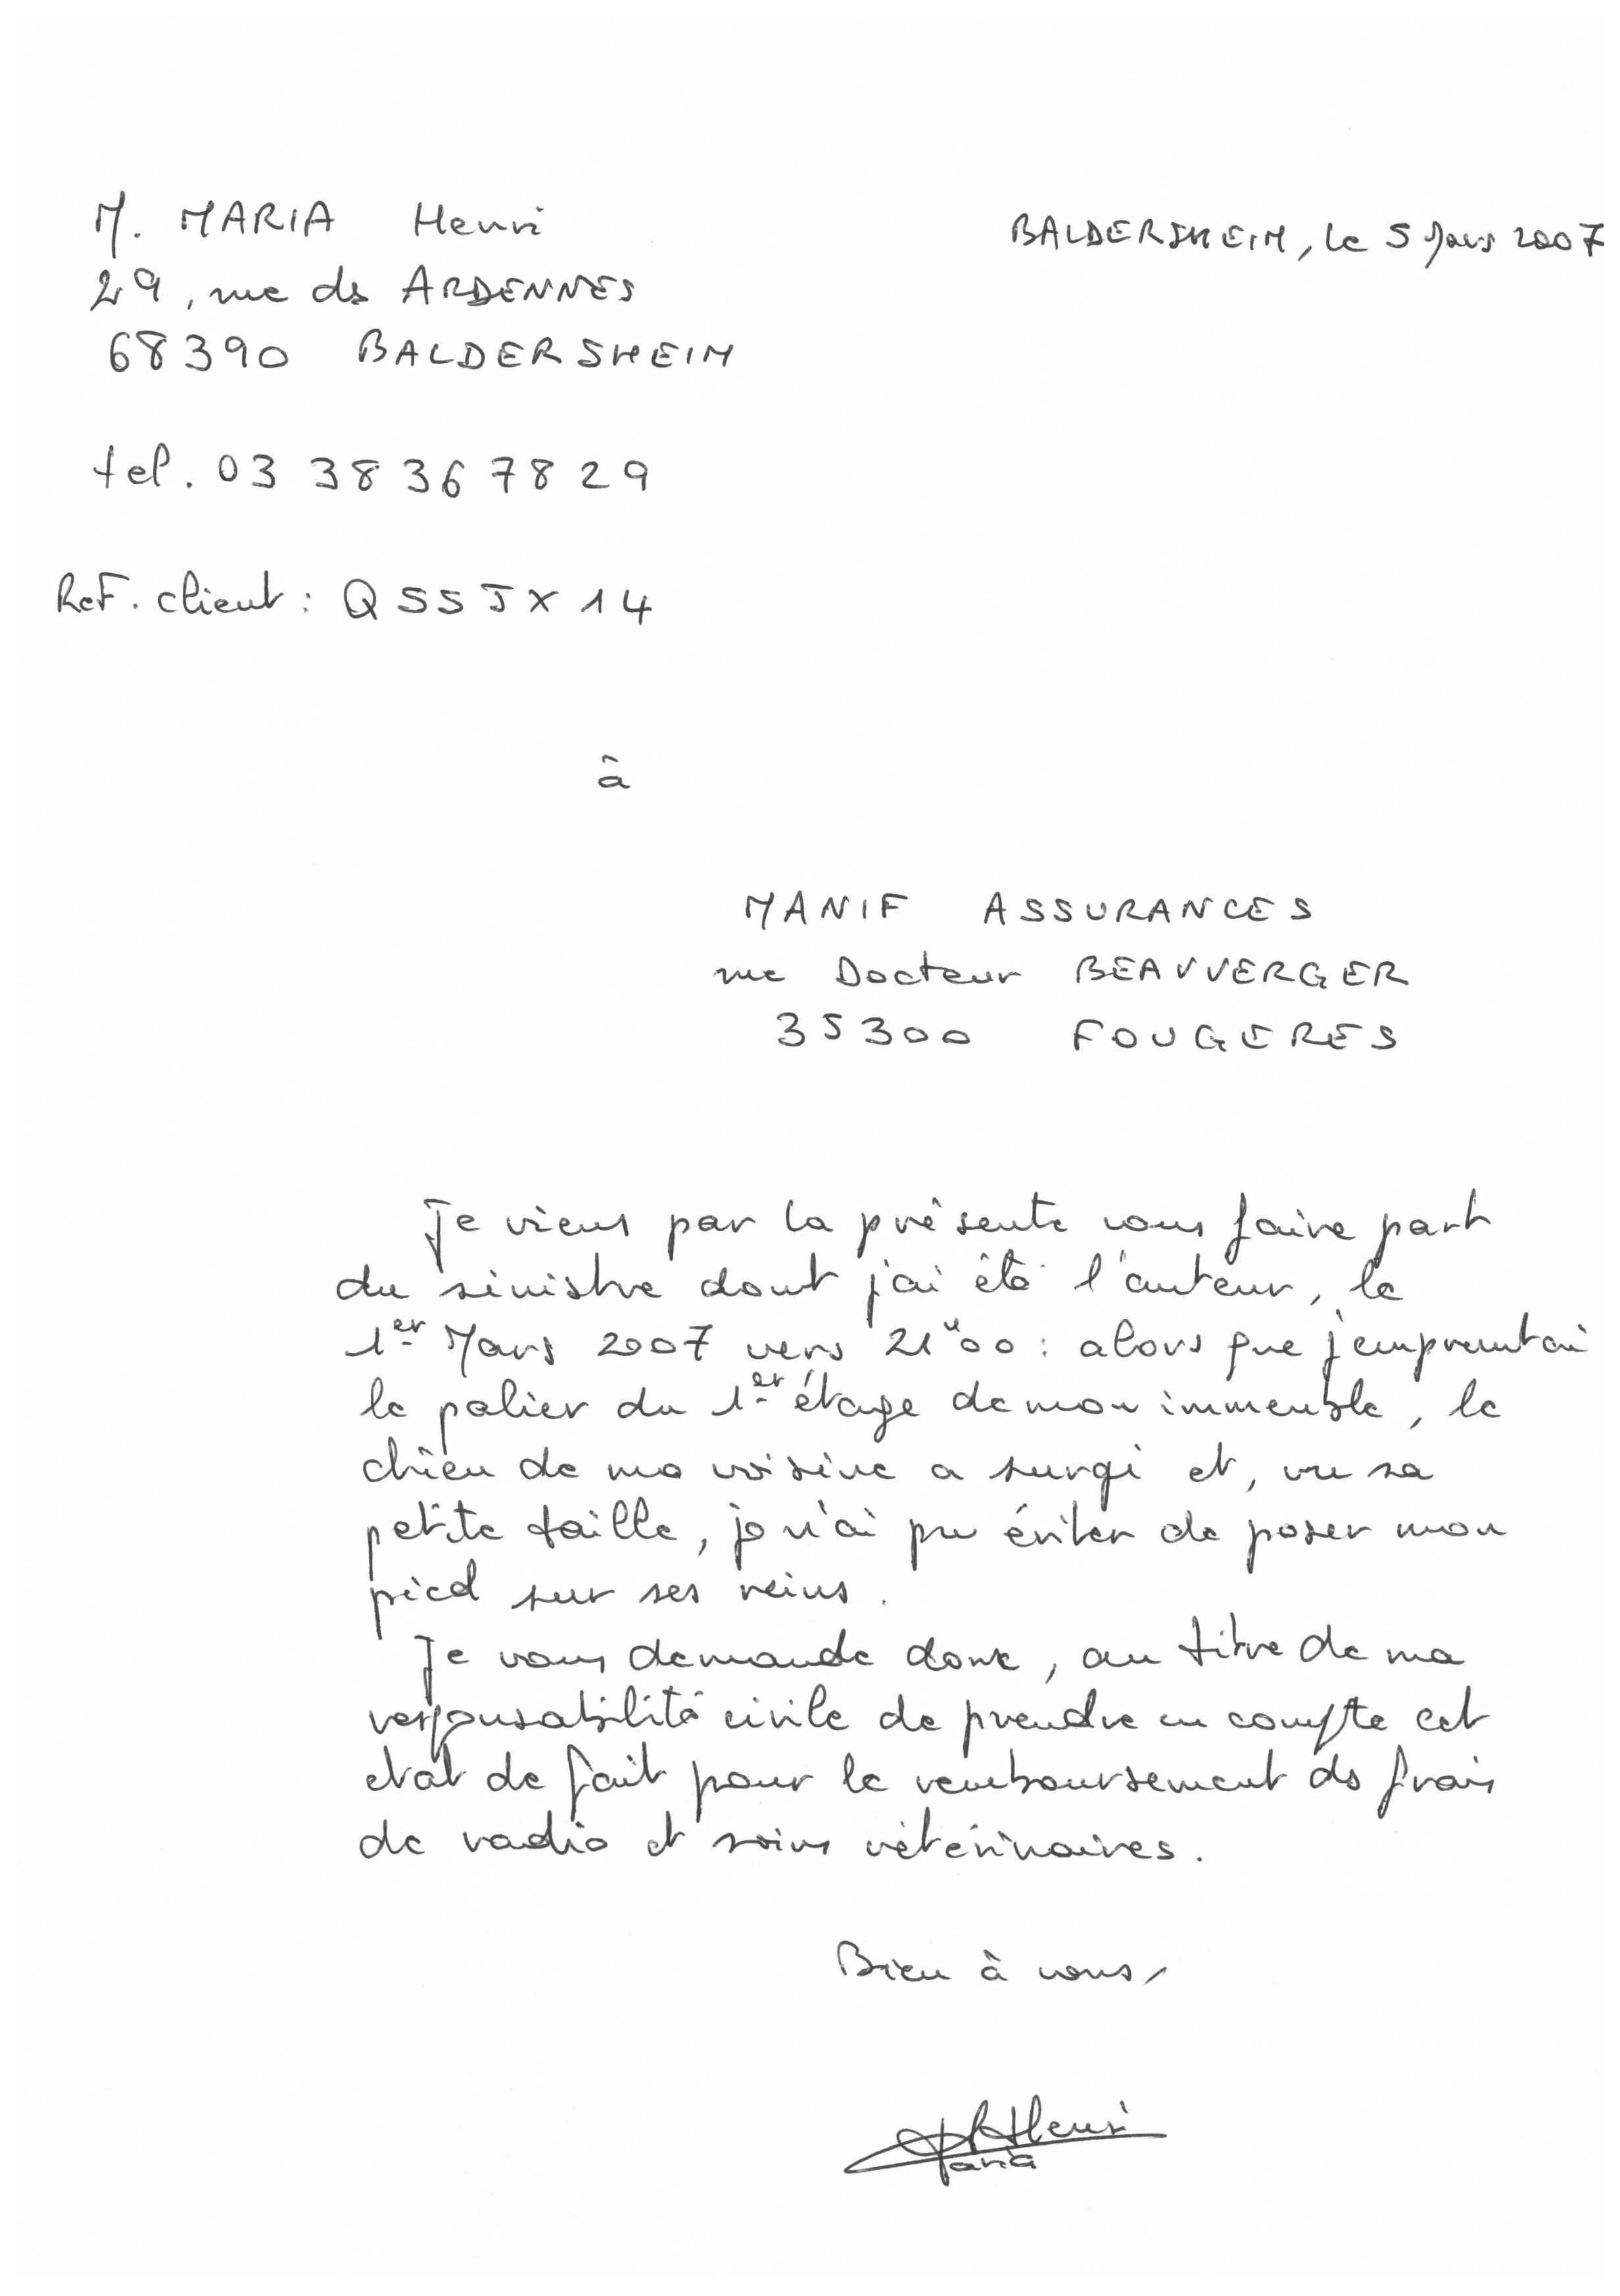 M. MARIA Henri
BALDERSHEIM, le 5 Mars 2007
29, rue des ARDENNES
68390 BALDERSHEIM
tel. 03 38 36 78 29
Ref. client : QSSJX14
à
MANIF ASSURANCES
rue Docteur BEAUVERGER
35300 FOUGERES
Je viens par la présente vous faire part
du sinistre dont j'ai été l'auteur, le
1er Mars 2007 vers 21h00 : alors que j'empruntai
le palier du 1er étage de mon immeuble, le
chien de ma voisine a surgi et, vu sa
petite taille, je n'ai pu éviter de poser mon
pied sur ses reins.
Je vous demande donc, au titre de ma
responsabilité civile de prendre en compte cet
etat de fait pour le remboursement des frais
de radio et soins vétérinaires.
Bien à vous,
Henri
Maria